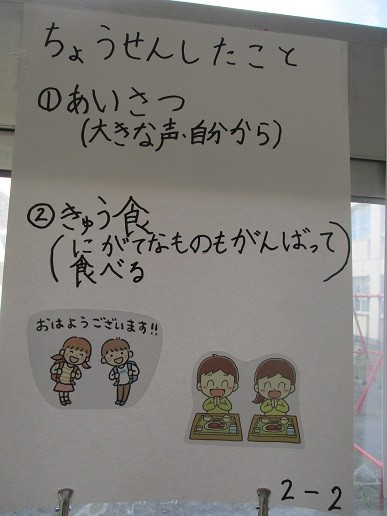 ちょうせんしたこと
①あいさつ
(大きな声、自分から)
②きゅう食
(にがてなものもがんばって
食べる)
おはようございます!!
2-2